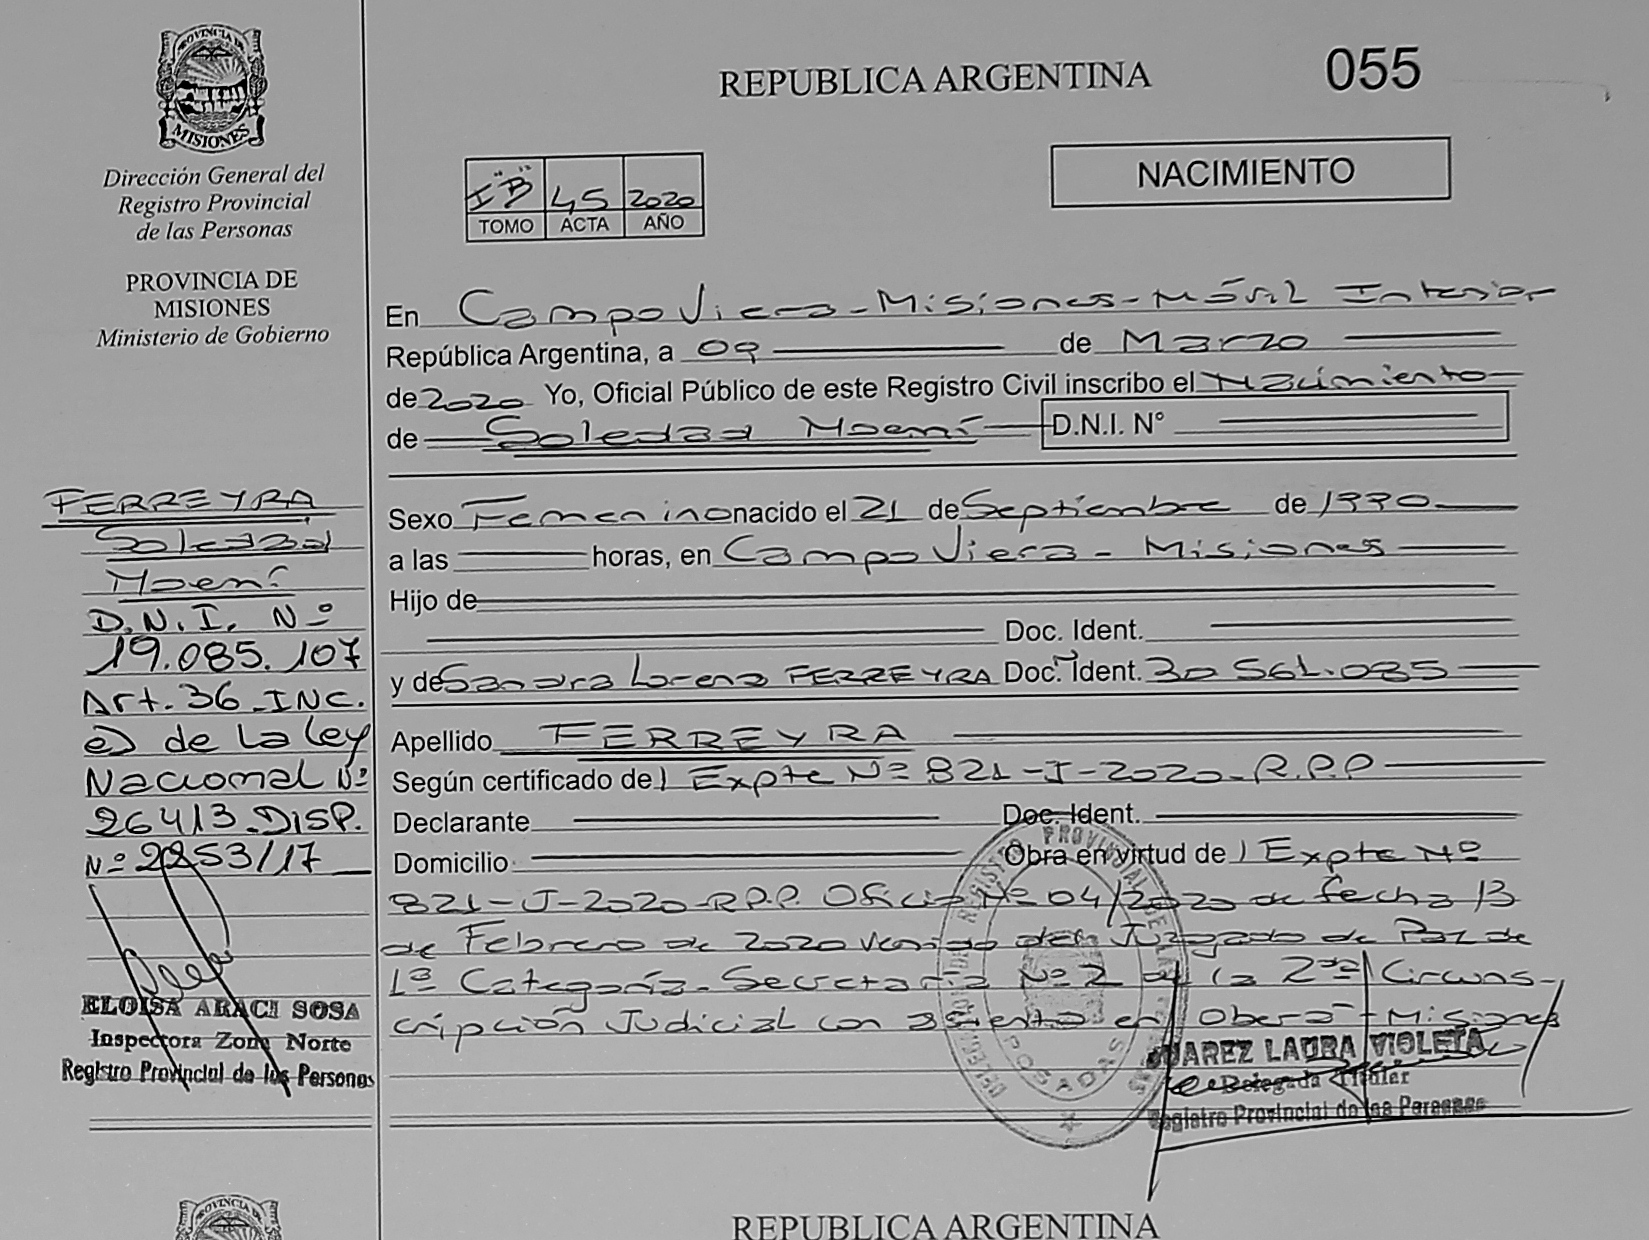 PROVINCIA DE
MISIONES
Dirección General del
Registro Provincial
de las Personas
PROVINCIA DE
MISIONES
Ministerio de Gobierno
FERREYRA
Soledad
Noemí
D.N.I. Nº
19.085.107
Art. 36 INC.
e) de la Ley
Nacional Nº
26413 DISP.
Nº 2253/17
ELOISA ARACI SOSA
Inspectora Zona Norte
Registro Provincial de las Personas
REPUBLICA ARGENTINA
055
NACIMIENTO
I"B" 45 2020
TOMO ACTA AÑO
En Campo Viera - Misiones - Móvil Interior
República Argentina, a 09 de Marzo
de 2020 Yo, Oficial Público de este Registro Civil inscribo el Nacimiento
de Soledad Noemí D.N.I. Nº
Sexo Femenino nacido el 21 de Septiembre de 1990
a las horas, en Campo Viera - Misiones
Hijo de
Doc. Ident.
y de Sandra Lorena FERREYRA Doc. Ident. 30 561.085
Apellido FERREYRA
Según certificado del Expte Nº 821-J-2020-R.P.P
Declarante Doc. Ident.
Domicilio Obra en virtud del Expte Nº
821-J-2020-R.P.P. Oficio Nº 04/2020 de fecha 13
de Febrero de 2020 venido del Juzgado de Paz de
1ª Categoría - Secretaría Nº 2 de la 2da Circuns-
cripción Judicial con asiento en Oberá - Misiones
POSADAS
SUAREZ LAURA VIOLETA
Delegada Titular
Registro Provincial de las Personas
PROVINCIA DE
REPUBLICA ARGENTINA